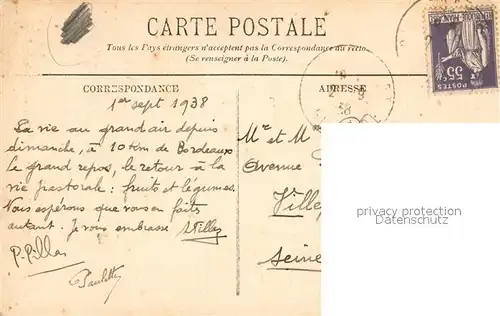 CARTE POSTALE
Tous les Pays étrangers n'acceptent pas la Correspondance au recto
(Se renseigner à la Poste).
CORRESPONDANCE
ADRESSE
1er sept 1938
La vie au grand air depuis
dimanche, à 10 Km de Bordeaux
le grand repos, le retour à la
vie pastorale : fruits et légumes.
Nous espérons que vous en faits
autant. Je vous embrasse
Paulette
Mr et M
Avenue
Ville
Seine
55c
POSTES
privacy protection
Datenschutz